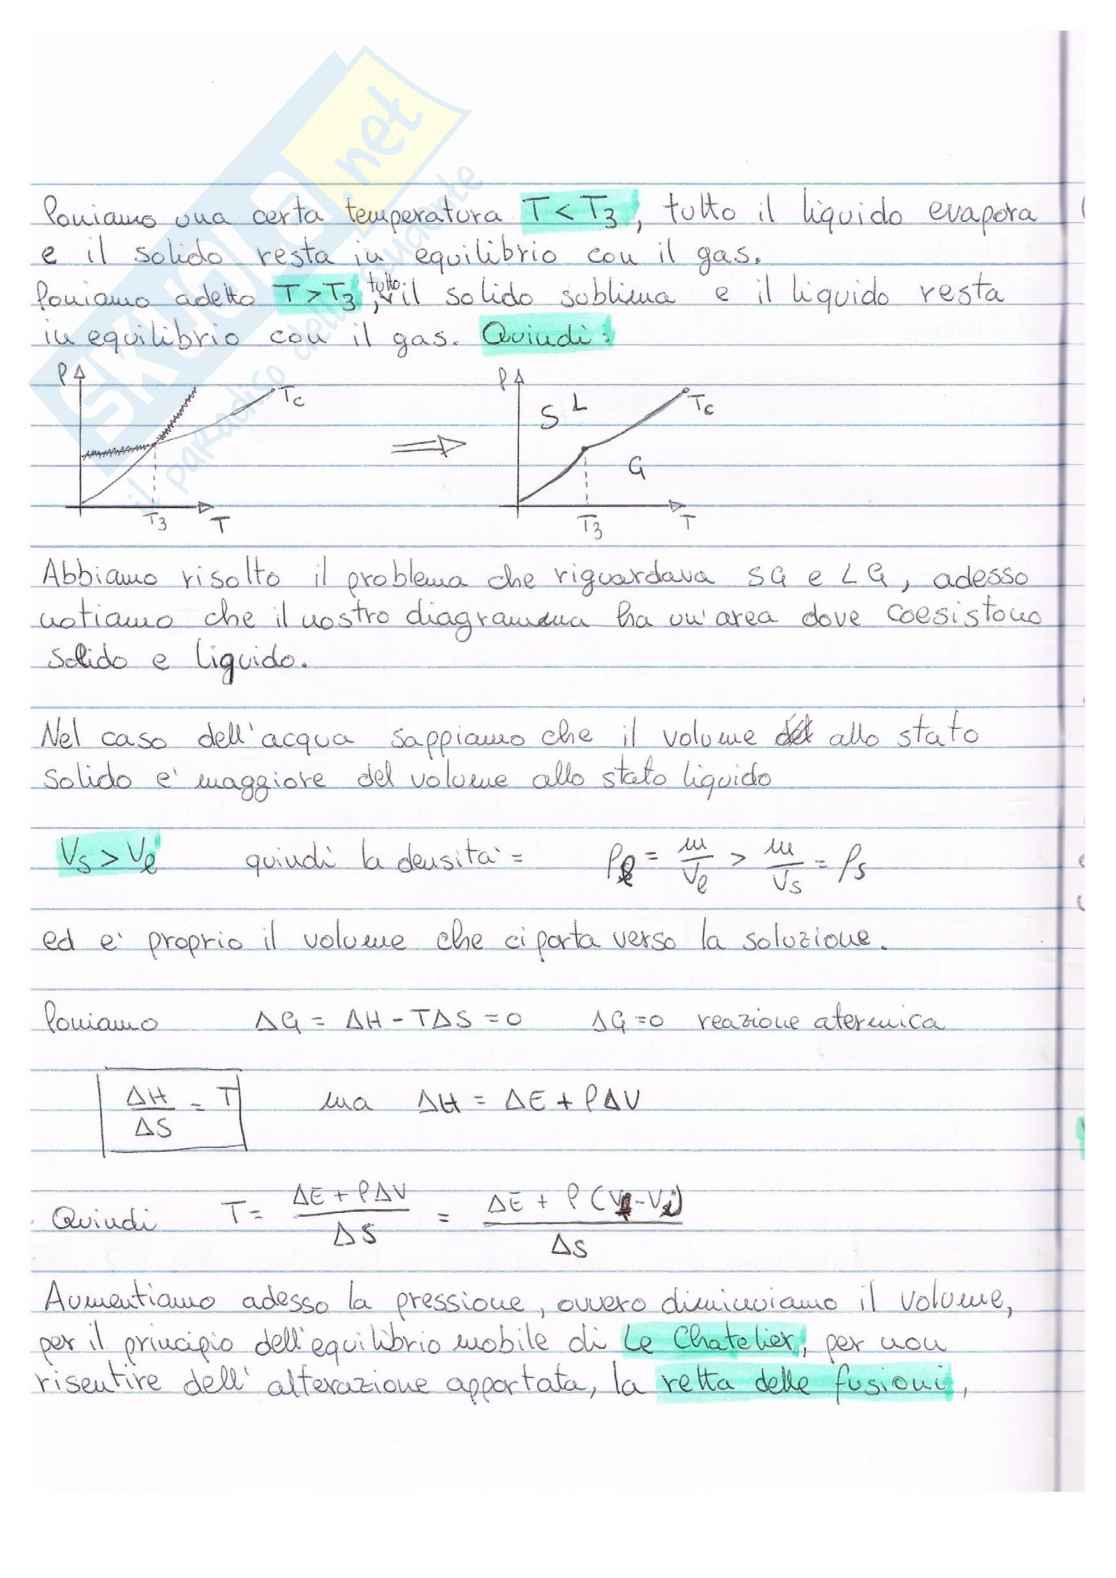 SKUOLA.net
il paradiso dello studente
Poniamo una certa temperatura T < T₃, tutto il liquido evapora
e il solido resta in equilibrio con il gas.
Poniamo adetto T > T₃, tutto il solido sublima e il liquido resta
in equilibrio con il gas. Quindi:
P Tc P Tc
S L
G
T₃ T T₃ T
Abbiamo risolto il problema che riguardava SG e LG, adesso
notiamo che il nostro diagramma ha un'area dove coesistono
solido e liquido.
Nel caso dell'acqua sappiamo che il volume allo stato
solido e' maggiore del volume allo stato liquido
Vs > Vℓ quindi la densita' = ρℓ = m/Vℓ > m/Vs = ρs
ed e' proprio il volume che ci porta verso la soluzione.
Poniamo ΔG = ΔH - TΔS = 0 ΔG = 0 reazione atermica
ΔH/ΔS = T ma ΔH = ΔE + PΔV
Quindi T = (ΔE + PΔV)/ΔS = (ΔE + P(Vf - Vi))/ΔS
Aumentiamo adesso la pressione, ovvero diminuiamo il volume,
per il principio dell'equilibrio mobile di Le Chatelier, per non
risentire dell'alterazione apportata, la retta delle fusioni,